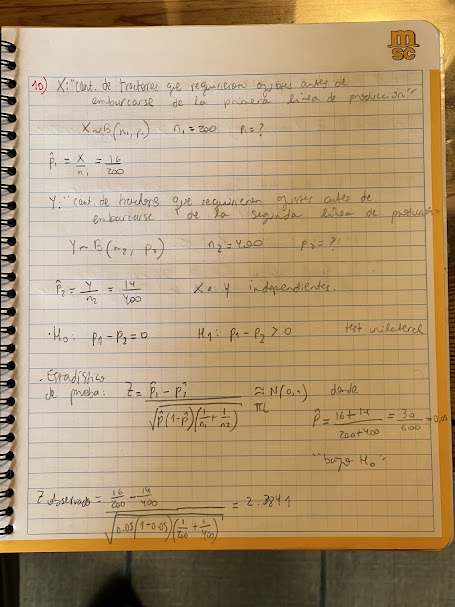 m
sc
10) X: "cant. de tractores que requirieron ajustes antes de
embarcarse de la primera linea de produccion"
X ~ B(n₁, p₁) n₁ = 200 p₁ = ?
p̂₁ = X/n₁ = 16/200
Y: "cant. de tractores que requirieron ajustes antes de
embarcarse de la segunda linea de produccion"
Y ~ B(n₂, p₂) n₂ = 400 p₂ = ?
p̂₂ = Y/n₂ = 14/400 X e Y independientes.
· H₀: p₁ - p₂ = 0 H₁: p₁ - p₂ > 0 test unilateral
. Estadístico
de prueba: Z = (p̂₁ - p̂₂) / √(p̂(1-p̂)(1/n₁ + 1/n₂)) ≈ N(0,1) donde
TCL p̂ = (16+14)/(200+400) = 30/600 = 0,05
"bajo H₀"
Z observado = (16/200 - 14/400) / √(0.05(1-0.05)(1/200 + 1/400)) = 2.3841